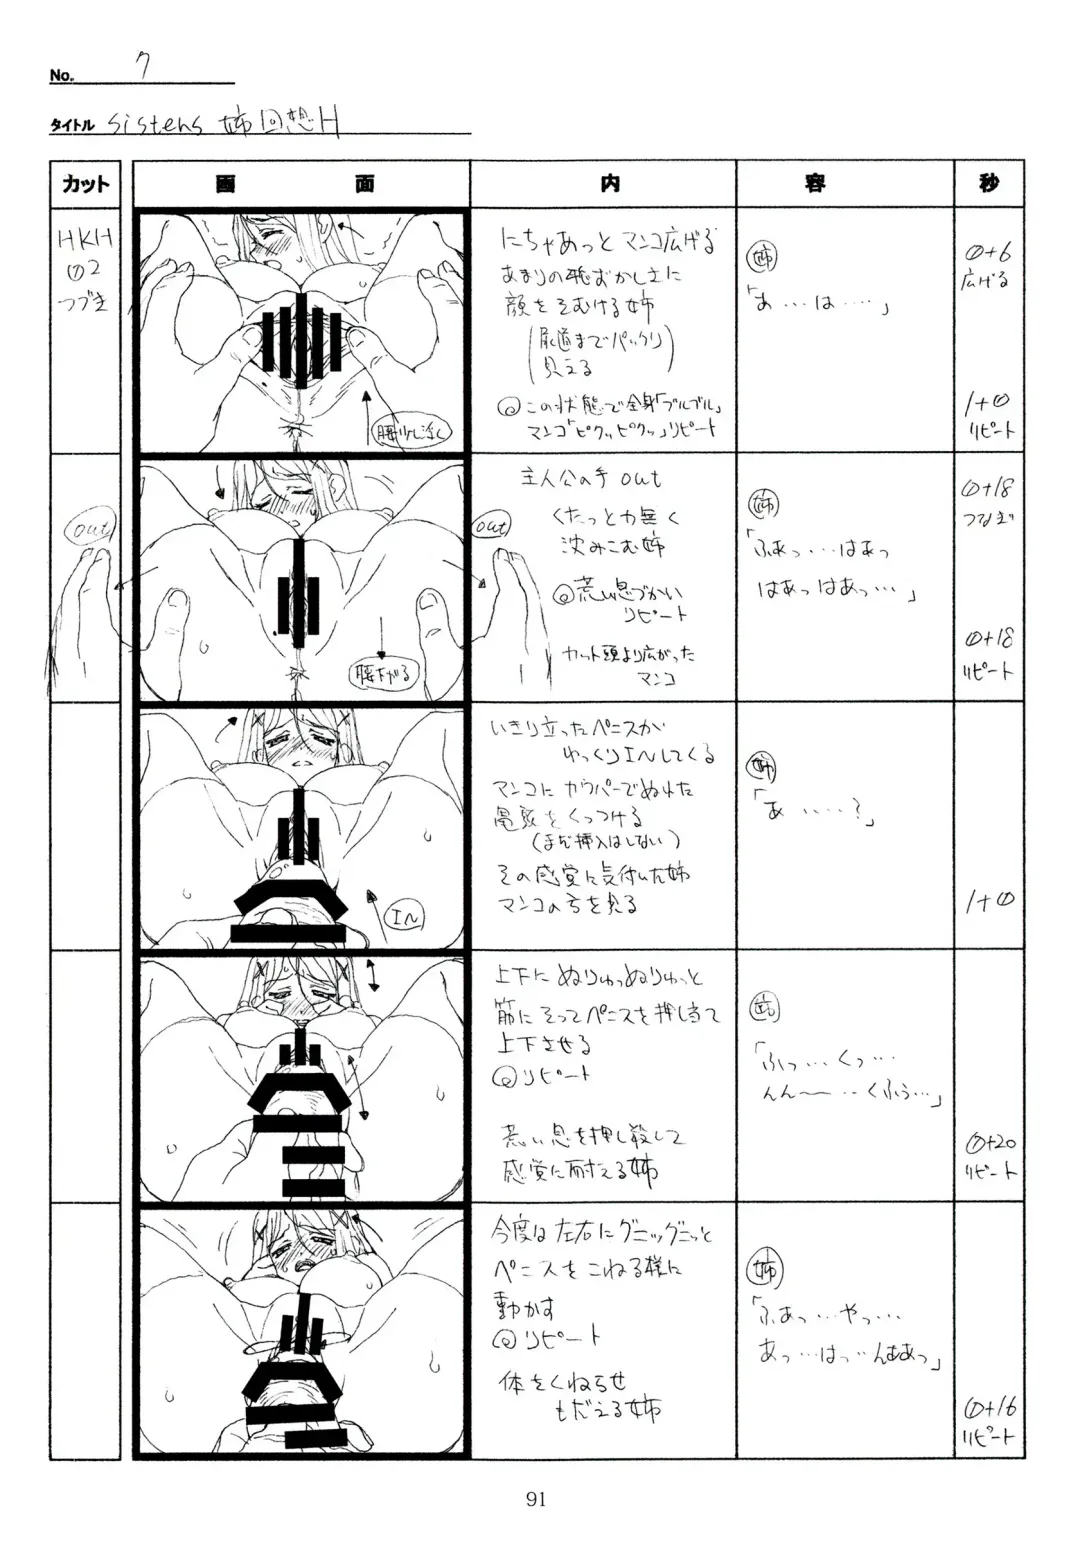 No. 7
タイトル sisters 姉回想H
カット 画面 内容 秒
HKH
02
つづき
にちゃあっとマンコ広げる
あまりの恥ずかしさに
顔をそむける姉
(尿道までパックリ
見える)
◎この状態で全身「ブルブル」
マンコ「ピクッピクッ」リピート
腰少し浮く
姉
「あ…は……」
0+6
広げる
1+0
リピート
out
out
主人公の手out
くたっと力無く
沈みこむ姉
◎荒い息づかい
リピート
カット頭より広がった
マンコ
腰下がる
姉
「ふあっ…はあっ
はあっはあっ…」
0+18
つなぎ
0+18
リピート
いきり立ったペニスが
ゆっくりINしてくる
マンコにカウパーでぬれた
亀頭をくっつける
(まだ挿入はしない)
その感覚に気付いた姉
マンコの方を見る
IN
姉
「あ……?」
1+0
上下にぬりゅっぬりゅっと
筋にそってペニスを押し当て
上下させる
◎リピート
荒い息を押し殺して
感覚に耐える姉
姉
「ふっ…くっ…
んん〜…くふぅ…」
0+20
リピート
今度は左右にグニッグニッと
ペニスをこねる様に
動かす
◎リピート
体をくねらせ
もだえる姉
姉
「ふあっ…やっ…
あっ…はっ…んああっ」
0+16
リピート
91